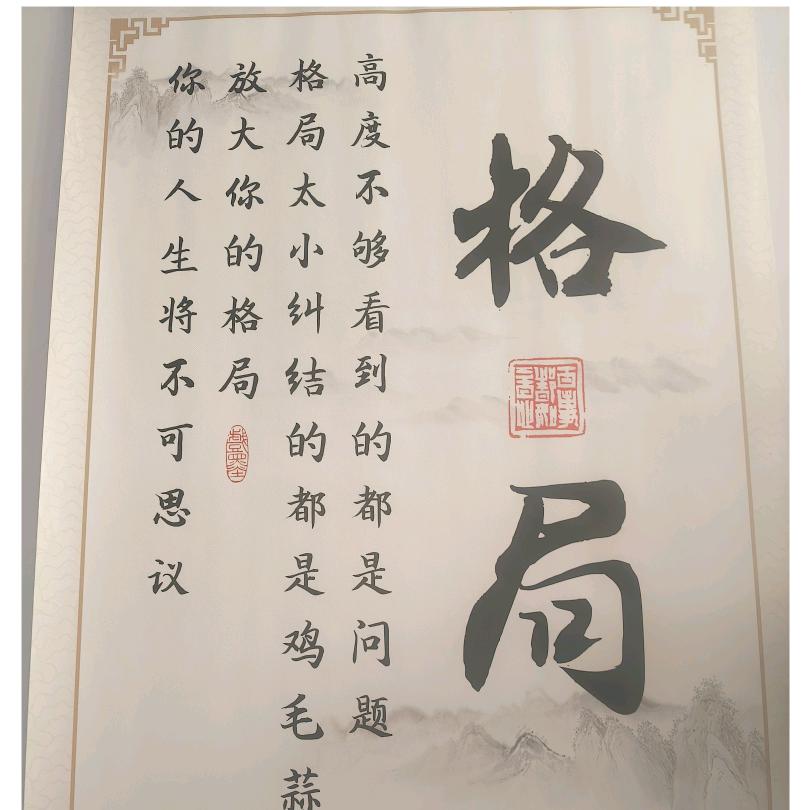 格局
高度不够看到的都是问题
格局太小纠结的都是鸡毛蒜
放大你的格局
你的人生将不可思议